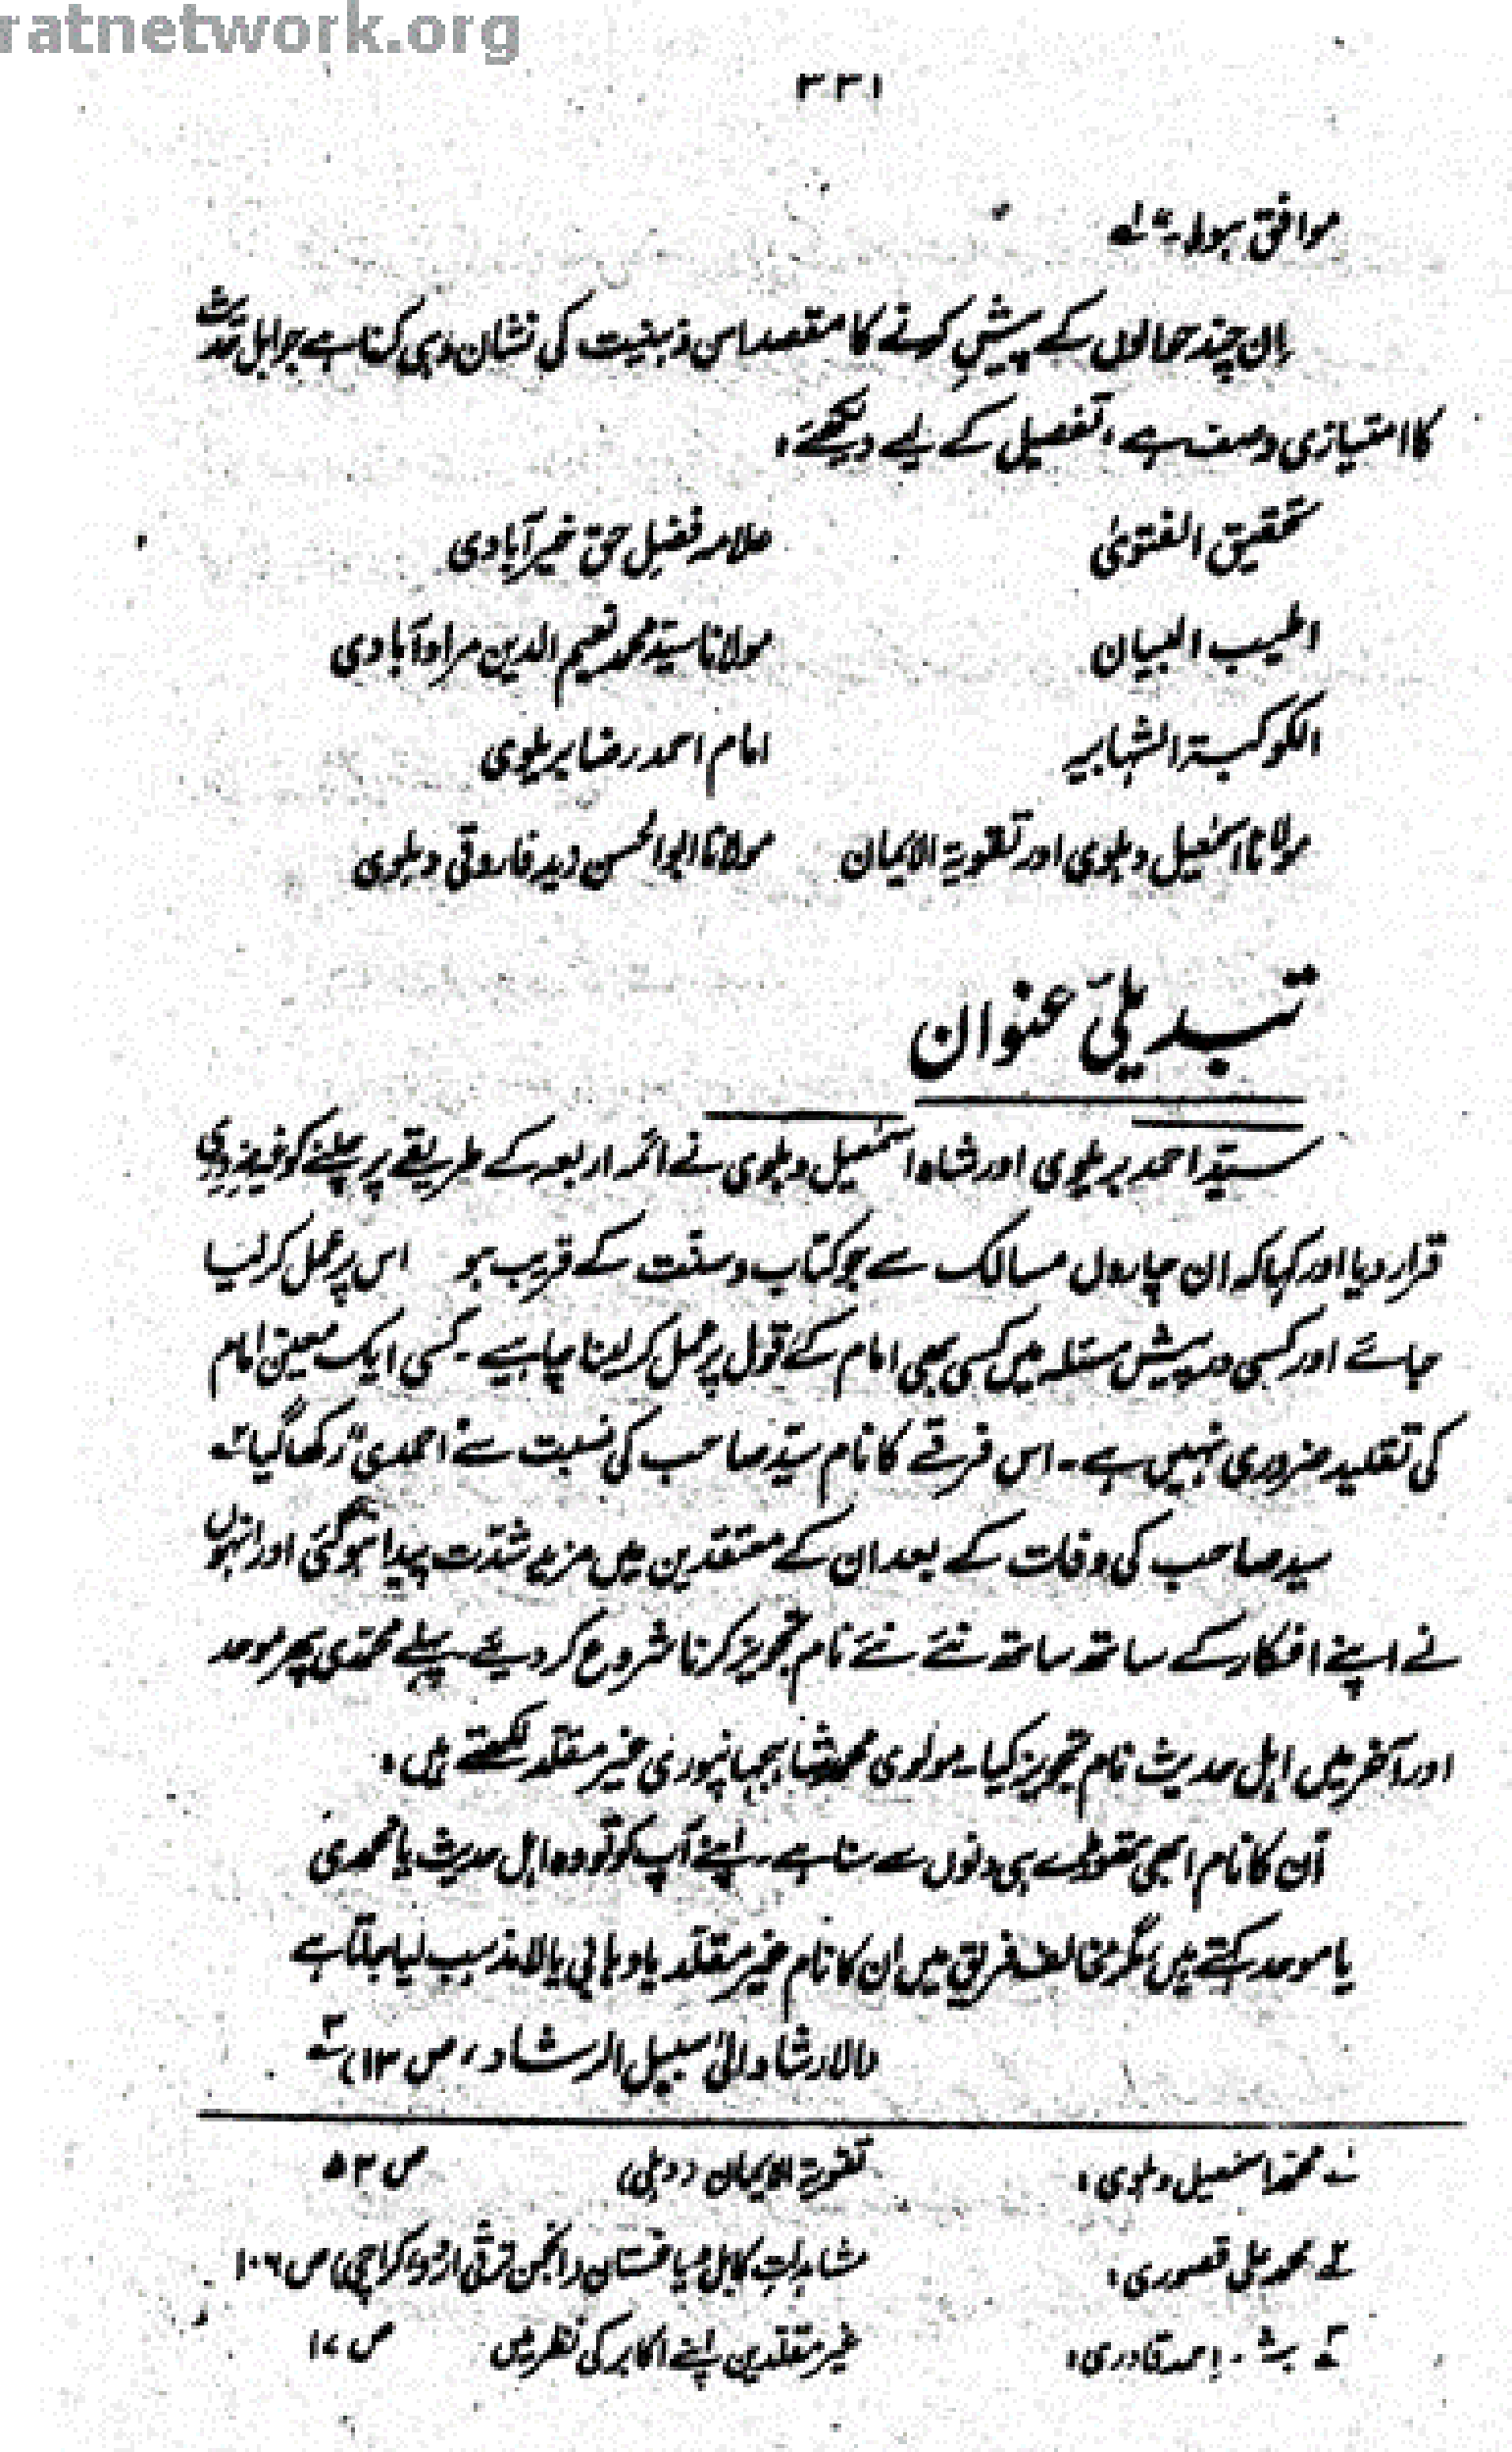 ratnetwork.org
۳۳۱
موافق ہوں۔" لہ
ان چند حوالوں کے پیش کرنے کا مقصد اس ذہنیت کی نشان دہی کرنا ہے جو اہل حدیث
کا امتیازی وصف ہے، تفصیل کے لیے دیکھئے:
تحقیق الفتویٰ علامہ فضل حق خیرآبادی
اطیب البیان مولانا سید محمد نعیم الدین مرادآبادی
الکوکبۃ الشہابیہ امام احمد رضا بریلوی
مولانا اسمٰعیل دہلوی اور تقویۃ الایمان مولانا ابوالحسن زید فاروقی دہلوی
تبدیلیٔ عنوان
سید احمد بریلوی اور شاہ اسمٰعیل دہلوی نے ائمہ اربعہ کے طریقے پر چلنے کو غیرضروری
قرار دیا اور کہا کہ ان چاروں مسالک سے جو کتاب و سنت کے قریب ہو اس پر عمل کر لیا
جائے اور کسی درپیش مسئلہ میں کسی بھی امام کے قول پر عمل کر لینا چاہیے۔ کسی ایک معین امام
کی تقلید ضروری نہیں ہے۔ اس فرقے کا نام سید صاحب کی نسبت سے "احمدی" رکھا گیا۲ھ
سید صاحب کی وفات کے بعد ان کے معتقدین میں مزید شدت پیدا ہو گئی اور انہوں
نے اپنے افکار کے ساتھ ساتھ نئے نئے نام تجویز کرنا شروع کر دیئے۔ پہلے محمدی پھر موحد
اور آخر میں اہل حدیث نام تجویز کیا۔ مولوی محمد شاہجہانپوری غیر مقلد لکھتے ہیں:
"ان کا نام ابھی تھوڑے ہی دنوں سے سنا ہے۔ اپنے آپ کو تو وہ اہل حدیث یا محمدی
یا موحد کہتے ہیں مگر مخالف فریق میں ان کا نام غیر مقلد یا وہابی یا لا مذہب لیا جاتا ہے
(الارشاد الیٰ سبیل الرشاد، ص ۱۳)۳ھ
لہ محمد اسمٰعیل دہلوی: تقویۃ الایمان (دہلی) ص ۵۳
۲ھ محمد علی قصوری: مشاہدات کابل و یاغستان (انجمن ترقی اردو، کراچی) ص ۱۰۶
۳ھ احمد قادری: غیر مقلدین اپنے اکابر کی نظر میں ص ۱۷